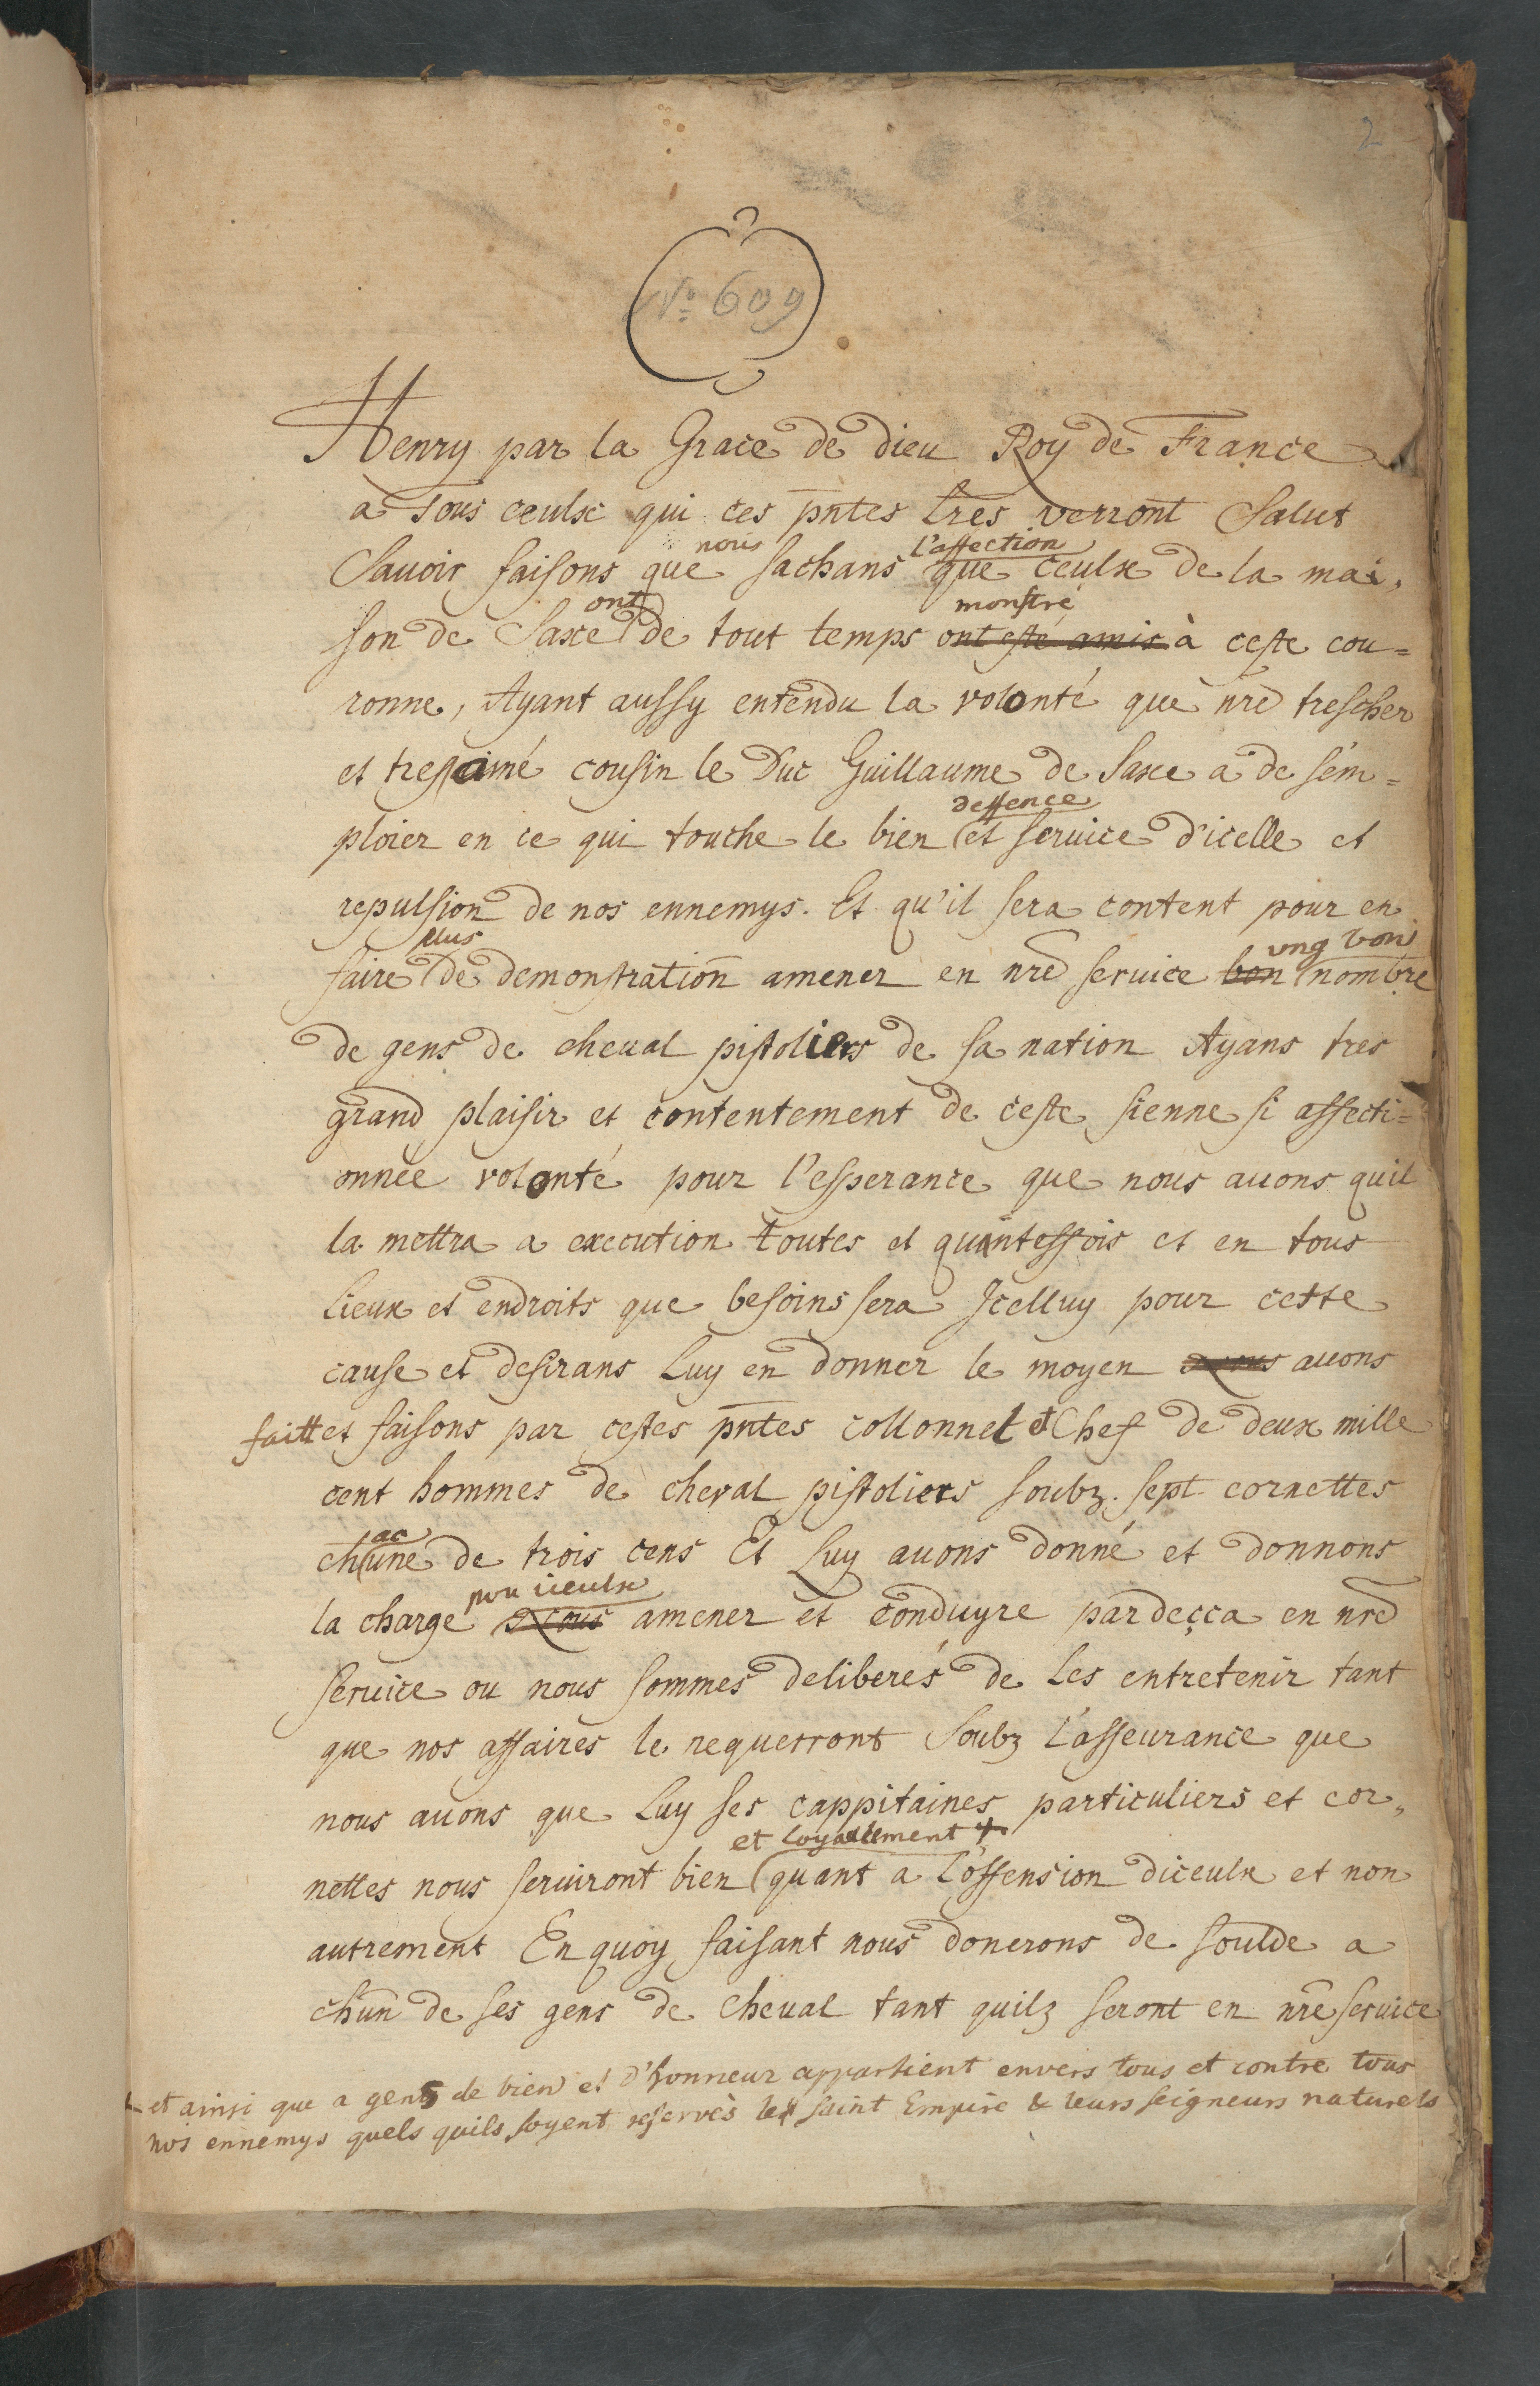 2
No. 609
Henry par la Grace de dieu Roy de France
a Tous ceulx qui ces pntes lres verront Salut
nous l'affection
Sauoir faisons que sachans que ceulx de la mai,
ont monstré
son de Saxe de tout temps ont esté amis à ceste cou=
ronne, Ayant aussy entendu la volonté que nre trescher
et tresaimé cousin le Duc Guillaume de Saxe a de sem=
deffence
ploier en ce qui touche le bien et seruice d'icelle et
repulsion de nos ennemys. Et qu'il sera content pour en
plus ung bon
faire de demonstration amener en nre seruice bon nombre
de gens de cheual pistoliers de sa nation Ayans tres
grand plaisir et contentement de ceste sienne si affecti=
onnée volonté pour l'esperance que nous auons quil
la mettra a execution toutes et quantesfois et en tous
lieux et endroits que besoins sera Icelluy pour cette
cause et desirans Luy en donner le moyen auons
faitt et faisons par cestes pntes collonnel et Chef de deux mille
cent hommes de cheval pistoliers soubz sept cornettes
ac
chune de trois cens Et Luy auons donné et donnons
pou iceulx
la charge amener et conduyre pardeçca en nre
seruice ou nous sommes deliberés de Les entretenir tant
que nos affaires le requerront Soubz L'asseurance que
nous auons que Luy ses cappitaines particuliers et cor,
et loyallement +
nettes nous seruiront bien quant a l'offension diceulx et non
autrement En quoy faisant nous donerons de soulde a
chun de ses gens de cheual tant quilz seront en nre seruice
+ et ainsi que a gens de bien et d'honneur appartient envers tous et contre tous
nos ennemys quels quils soyent reservés le saint Empire & leurs seigneurs naturels